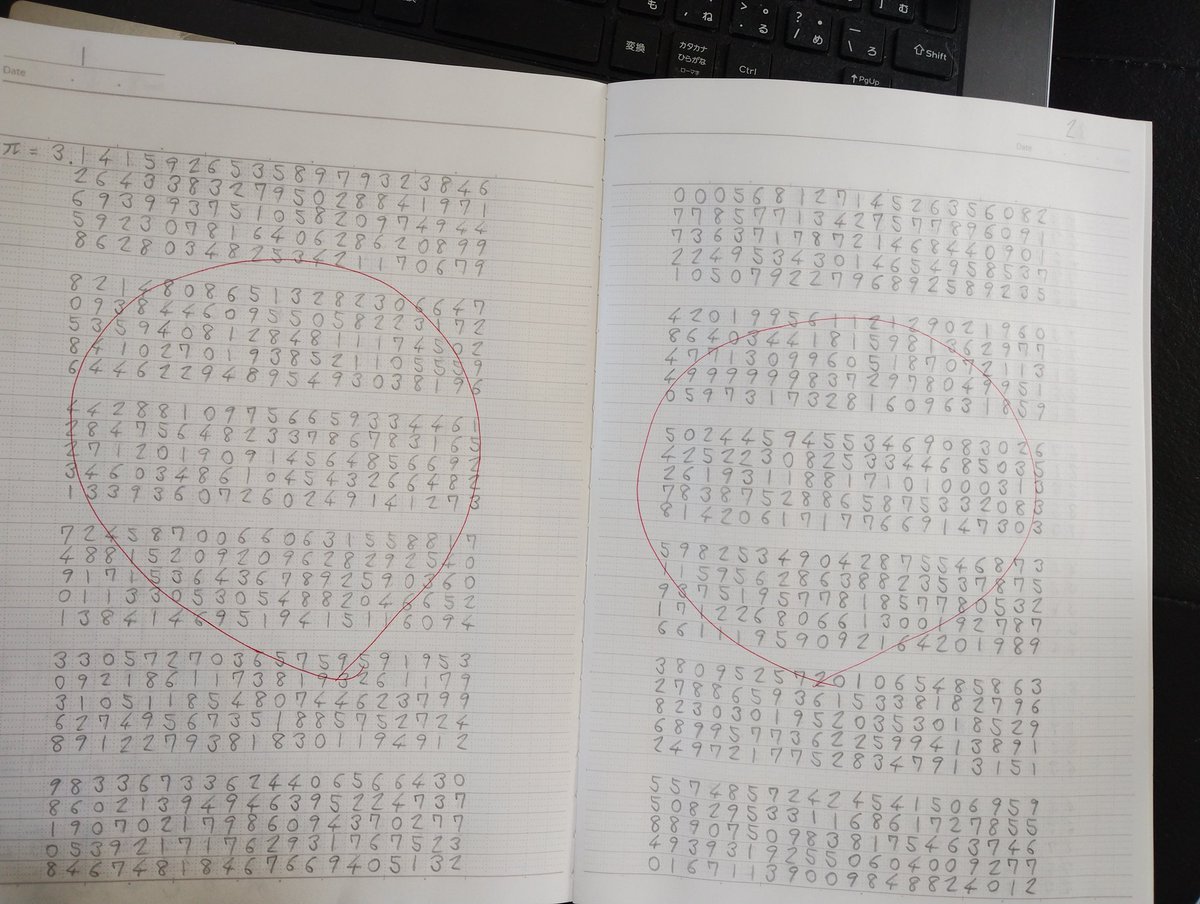 も
, ね
> 。 . る
? ・ / め
\ ろ
む
変換
カタカナ
ひらがな
ローマ字
Ctrl
Shift
PgUp
1
Date
π = 3.14159265358979323846
26433832795028841971
69399375105820974944
59230781640628620899
86280348253421170679
82148086513282306647
09384460955058223172
53594081284811174502
84102701938521105559
64462294895493038196
44288109756659334461
28475648233786783165
27120190914564856692
34603486104543266482
13393607260249141273
72458700660631558817
48815209209628292540
91715364367892590360
01133053054882046652
13841469519415116094
33057270365759591953
09218611738193261179
31051185480744623799
62749567351885752724
89122793818301194912
98336733624406566430
86021394946395224737
19070217986094370277
05392171762931767523
84674818467669405132
2
Date
00056812714526356082
77857713427577896091
73637178721468440901
22495343014654958537
10507922796892589235
42019956112129021960
86403441815981362977
47713099605187072113
49999998372978049951
05973173281609631859
50244594553469083026
42522308253344685035
26193118817101000313
78387528865875332083
81420617177669147303
59825349042875546873
11595628638823537875
93751957781857780532
17122680661300192787
66111959092164201989
38095257201065485863
27886593615338182796
82303019520353018529
68995773622599413891
24972177528347913151
55748572424541506959
50829533116861727855
88907509838175463746
49393192550604009277
01671139009848824012